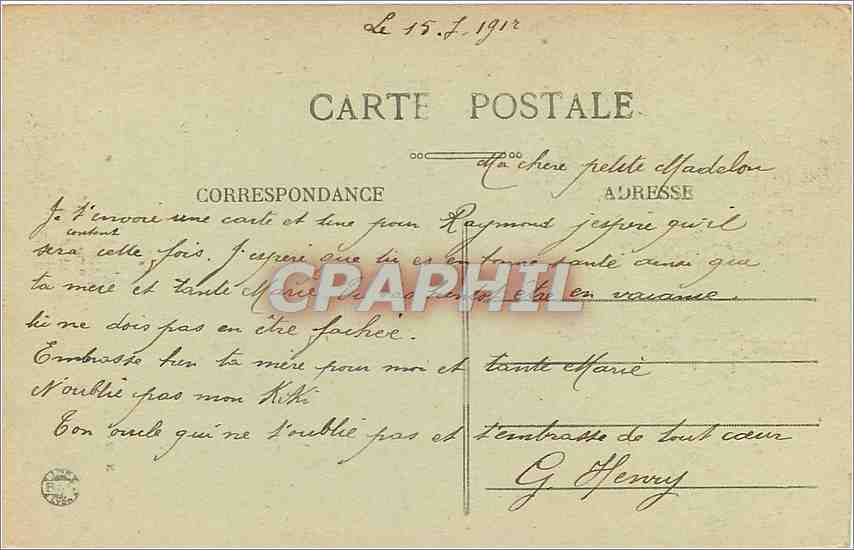 Le 15.7.1912
CARTE POSTALE
Ma chere petite Madelon
CORRESPONDANCE ADRESSE
Je t'envoie une carte et une pour Raymond j'espere qu'il
content
sera cette fois. J'espere que tu es en bonne santé ainsi que
ta mère et tante Marie Tu vas bientot etre en vacance.
CPAPHIL
tu ne dois pas en être fachée.
Embrasse bien ta mère pour moi et tante Marie
N'oublie pas mon KiKi
Ton oncle qui ne t'oublie pas et t'embrasse de tout cœur
G. Henry